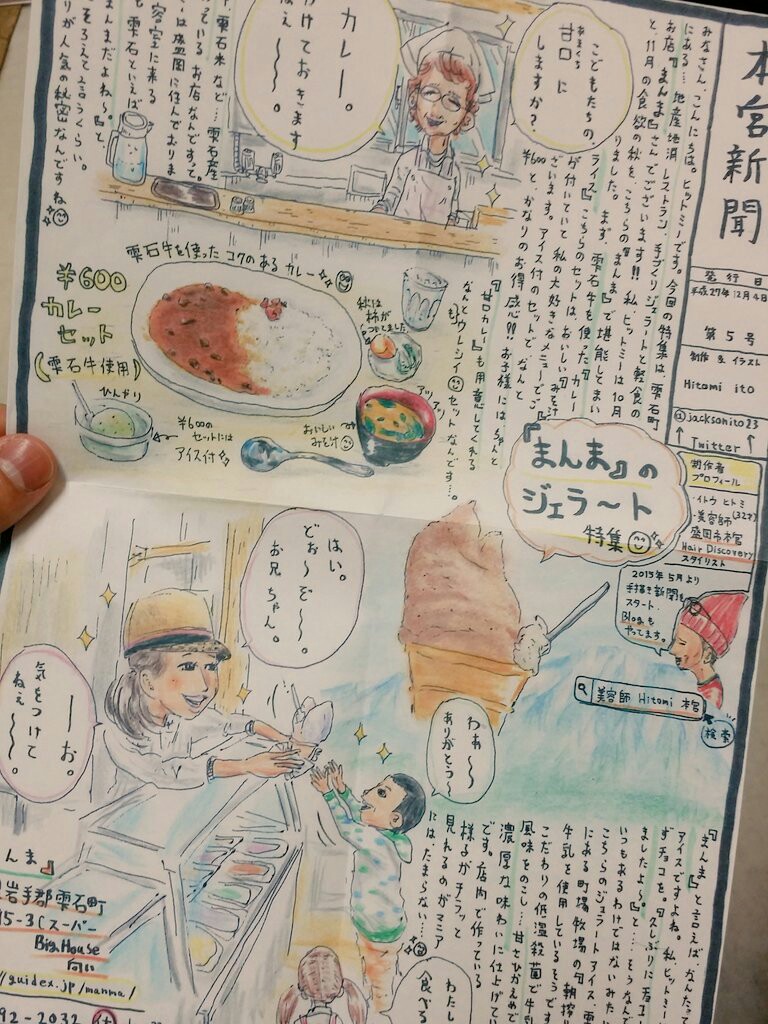 本宮新聞
発行日
平成27年12月4日
第5号
制作 & イラスト
Hitomi ito
@jacksonito23
Twitter
制作者
プロフィール
・イトウ ヒトミ
・美容師(32才)
盛岡市本宮
Hair Discovery
スタイリスト
2015年5月より
手描き新聞を
スタート
Blogも
やってます。
美容師 Hitomi 本宮
検索
みなさん、こんにちは。ヒットミーです。今回の特集は、雫石町
にある…地産地消レストラン、手づくりジェラートと軽食の
お店『まんま』さんでございます!!私、ヒットミーは10月
と、11月の食欲の秋を、こちらの『まんま』で堪能してまい
りました。まず、雫石牛を使った『カレー
ライス』こちらのセットは、おいしい『みそ汁』
が付いていて、私の大好きなメニューでご
ざいます。アイス付のセットで、なんと
¥600と、かなりのお得感!!お子様にはちゃんと
『甘口カレー』も用意してくれる
なんともウレシイセットなんです…。
こどもたちの、
甘口に
あまくち
しますか?
カレー。
わけておきます
ねぇ〜〜。
雫石米など…雫石産
っているお店なんですって。
は盛岡に住んでおりま
容室に来る
も雫石といえば
まんまだよね〜』と、
そろえて言うくらい。
りが人気の秘密なんですね
雫石牛を使ったコクのあるカレー
¥600
カレー
セット
(雫石牛使用)
秋は
柿が
ついてました
ひんやり
¥600の
セットには
アイス付
おいしい
みそ汁
アツアツ
『まんま』の
ジェラ〜ト
特集
はい。
どぉ〜ぞ〜。
お兄ちゃん。
ーお。
気をつけて
ねぇ〜〜。
わぁ〜〜
ありがとっ〜
『まんま』と言えば、なんたって
アイスですよね。私、ヒットミー
ずチョコを。『久しぶりに
ましたよ〜。』と…そうなんで
いつもあるわけではないみた
こちらのジェラートアイス、雫
にある町場牧場の『朝搾
牛乳を使用しているそうです
こだわりの低温殺菌で牛乳
風味をのこし…甘さひかえめで
濃厚な味わいに仕上げてい
です。店内で作っている
様子がチラッと
見れるのがマニア
にはたまらない…。
わたし
食べる
んま』
岩手郡雫石町
15-3Cスーパー
Big House
向い
//guidex.jp/manma/
92-2032